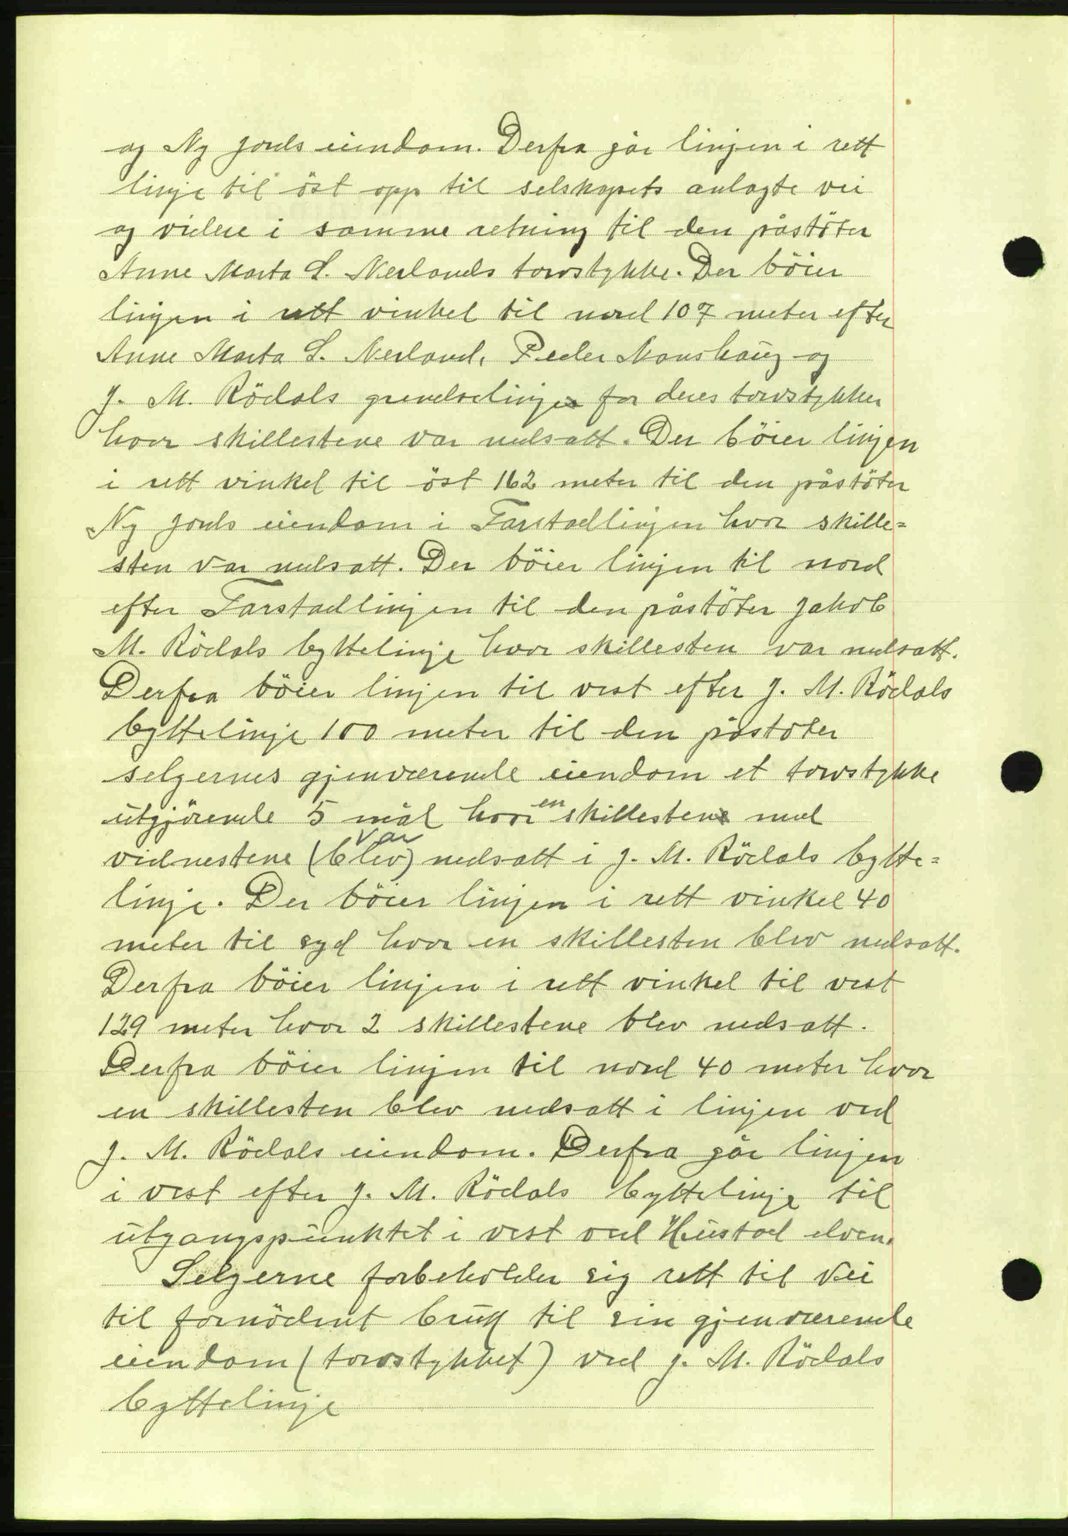 og Ny Jords eiendom. Derfra går linjen i rett
linje til öst opp til selskapets anlagte vei
og videre i samme retning til den påstöter
Anne Marta L. Nerlands torvstykke. Der böier
linjen i rett vinkel til nord 107 meter efter
Anne Marta L. Nerland, Peder Monshaug og
J. M. Rödals grendselinje for deres torvstykker
hvor skillestene var nedsatt. Der böier linjen
i rett vinkel til öst 162 meter til den påstöter
Ny Jords eiendom i Farstadlinjen hvor skille=
sten var nedsatt. Der böier linjen til nord
efter Farstadlinjen til den påstöter Jakob
M. Rödals byttelinje hvor skillesten var nedsatt.
Derfra böier linjen til vest efter J. M. Rödals
byttelinje 100 meter til den påstöter
selgernes gjenværende eiendom et torvstykke
utgjörende 5 mål hvor en skillesten med
vidnestene (blev) var nedsatt i J. M. Rödals bytte=
linje. Der böier linjen i rett vinkel 40
meter til syd hvor en skillesten blev nedsatt.
Derfra böier linjen i rett vinkel til vest
129 meter hvor 2 skillestene blev nedsatt.
Derfra böier linjen til nord 40 meter hvor
en skillesten blev nedsatt i linjen ved
J. M. Rödals eiendom. Derfra går linjen
i vest efter J. M. Rödals byttelinje til
utgangspunktet i vest ved Hustad elven.
Selgerne forbeholder sig rett til vei
til fornödent bruk til sin gjenværende
eiendom (torvstykket) ved J. M. Rödals
byttelinje